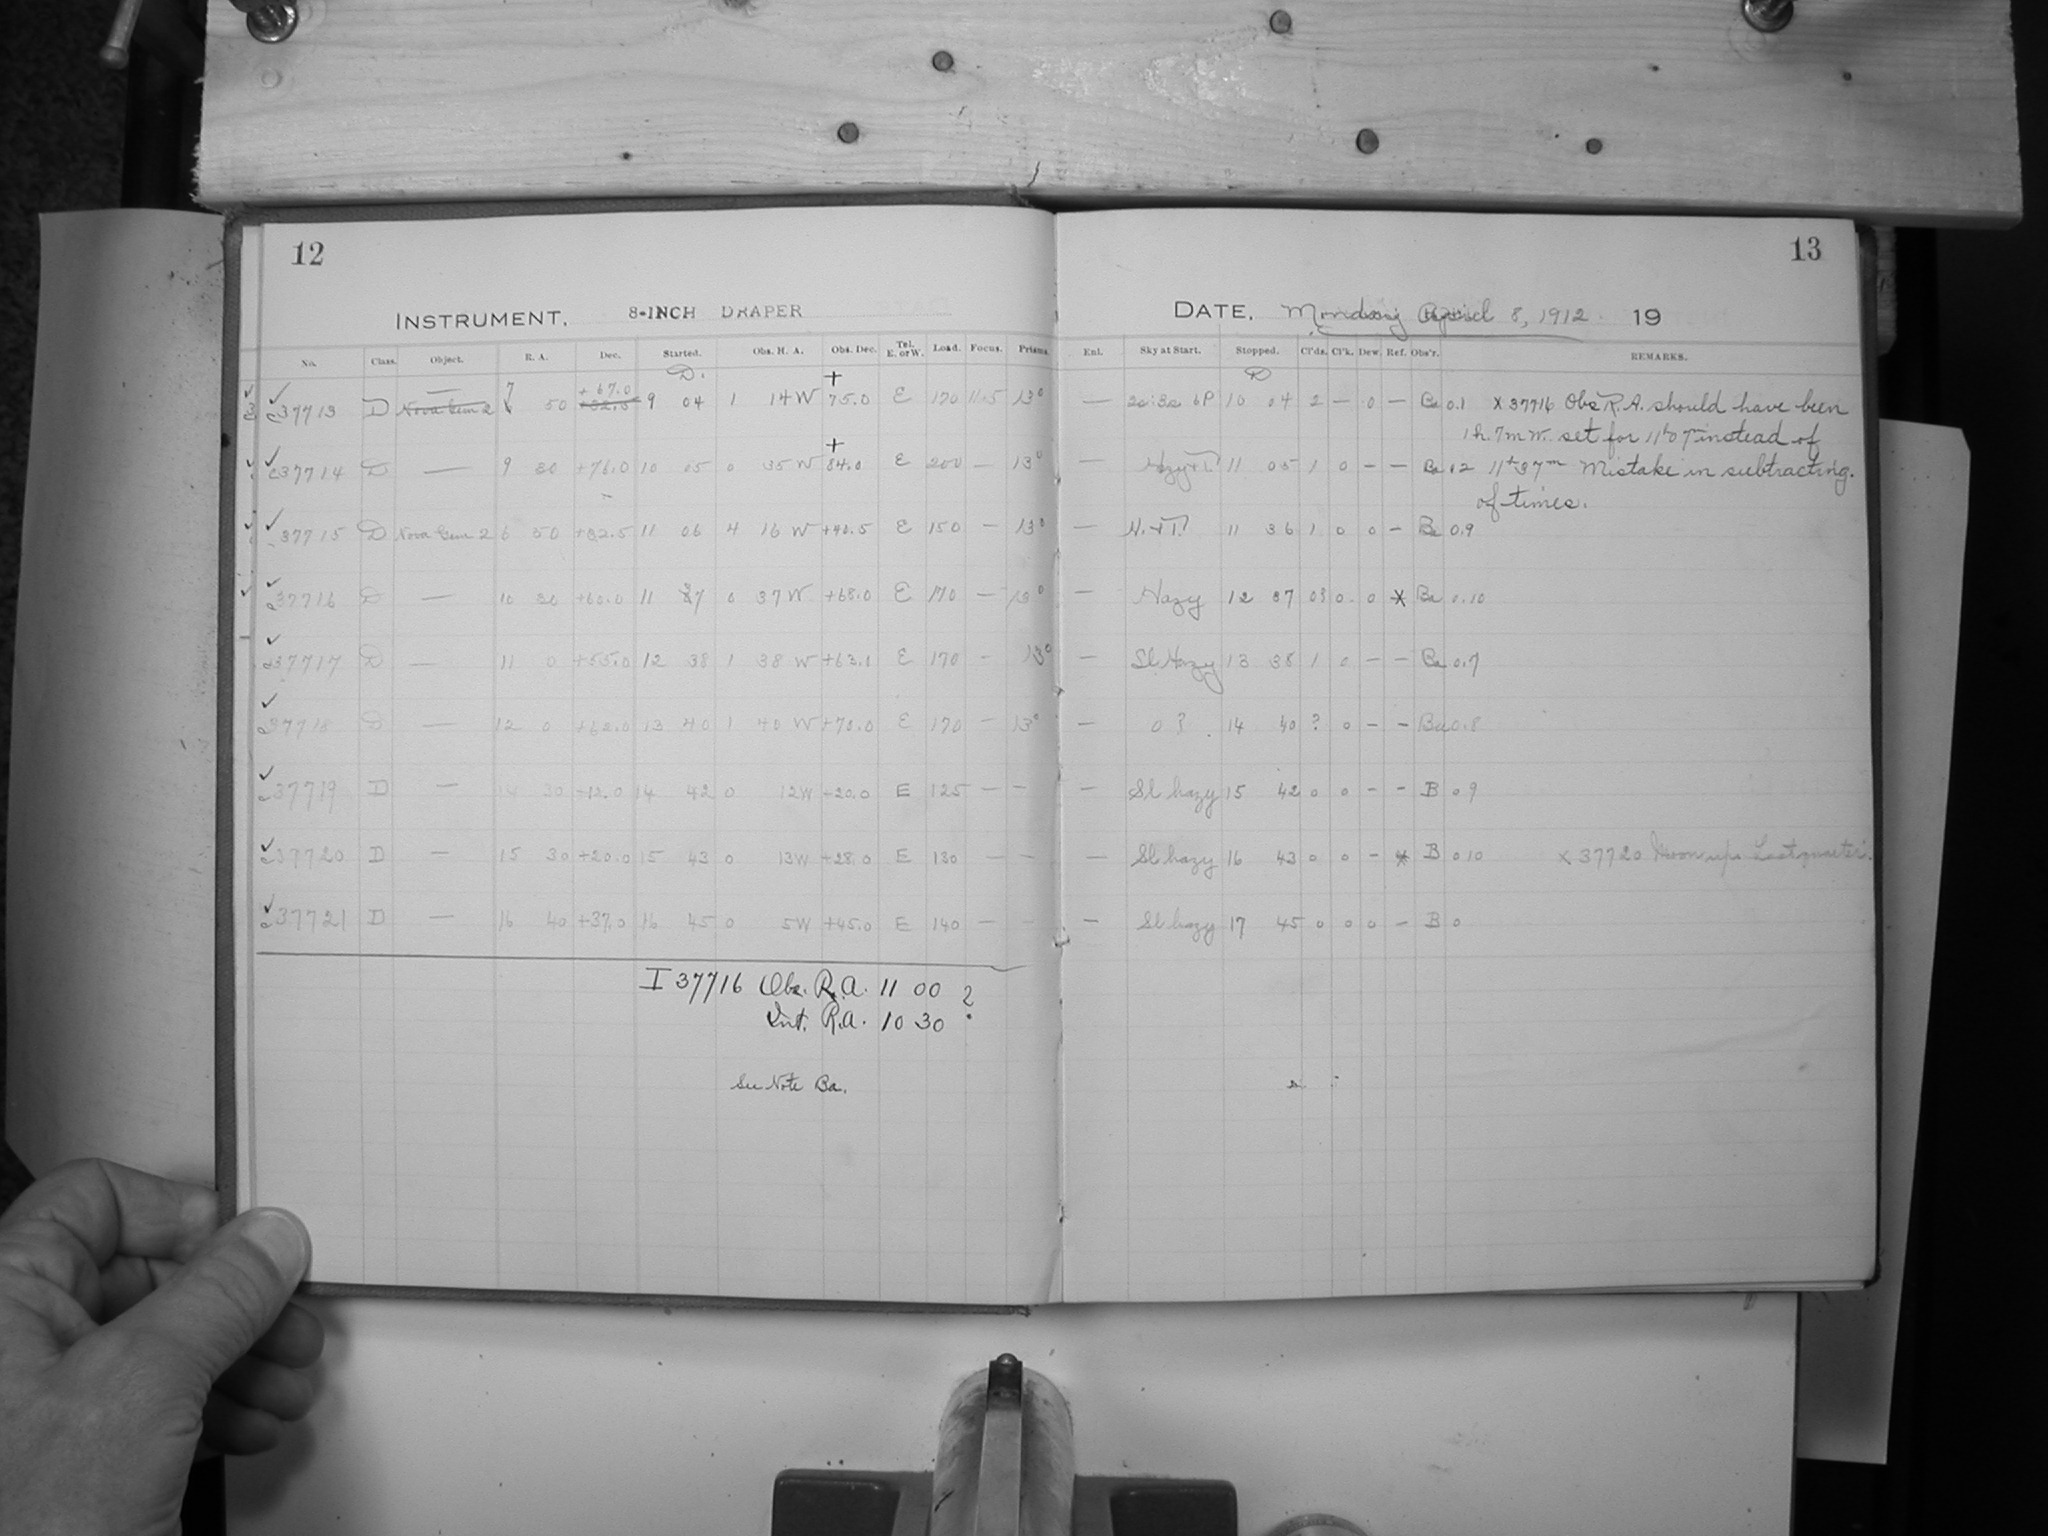 12
INSTRUMENT. 8-INCH DRAPER
No. Class. Object. R. A. Dec. Started. Obs. H. A. Obs. Dec. Tel. E. or W. Load. Focus. Prisms.
D. +
c37713 D Nova Gem 2 7 50 +67.0 +32.5 9 04 1 14 W 75.0 E 170 11.5 13°
+
c37714 D — 9 30 +76.0 10 05 0 35 W 84.0 E 200 — 13°
37715 D Nova Gem 2 6 50 +32.5 11 06 4 16 W +40.5 E 150 — 13°
c37716 D — 10 30 +60.0 11 37 0 37 W +68.0 E 170 — 13°
c37717 D — 11 0 +55.0 12 38 1 38 W +63.0 E 170 - 13°
c37718 D — 12 0 +62.0 13 40 1 40 W +70.0 E 170 — 13°
c37719 D — 14 30 +12.0 14 42 0 12W +20.0 E 125 — —
c37720 D — 15 30 +20.0 15 43 0 13W +28.0 E 130 — —
c37721 D — 16 40 +37.0 16 45 0 5W +45.0 E 140 — —
I 37716 Obs. R.A. 11 00 ?
Int. R.A. 10 30
See Note Ba.
13
DATE. Monday April 8, 1912. 19
Enl. Sky at Start. Stopped. Cl'ds. Cl'k. Dew. Ref. Obs'r. REMARKS.
D
— 10 04 2 — 0 — Ba 0.1 X 37716 Obs R.A. should have been
1h. 7m W. set for 11h 07m instead of
— 11 05 1 0 — — Ba 12 11h 37m Mistake in subtracting.
of times.
— H. + T. 11 36 1 0 0 — Ba 0.9
— Hazy 12 37 0? 0 0 * Ba 0.10
— Sl. Hazy 13 38 1 0 — — Ba 0.7
— 0? 14 40 ? 0 — — Ba 0.8
— Sl hazy 15 42 0 0 — — B 0 9
— Sl hazy 16 43 0 0 — * B 0 10 X 37720 Moon up. Last quarter.
— Sl hazy 17 45 0 0 0 — B 0